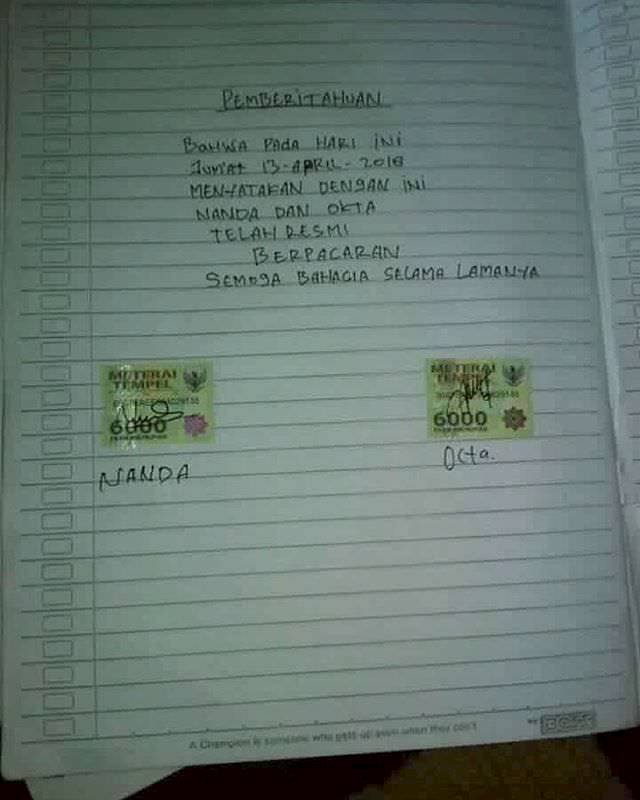 PEMBERITAHUAN
BAHWA PADA HARI INI
Jum'at 13-APRIL-2018
MENYATAKAN DENGAN INI
NANDA DAN OKTA
TELAH RESMI
BERPACARAN
SEMOGA BAHAGIA SELAMA LAMANYA
METERAI
TEMPEL
6000
METERAI
TEMPEL
6000
NANDA
Octa.
A Champion is someone who gets up even when they can't
BOSS